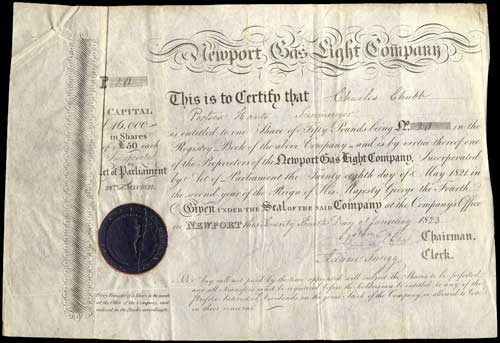 Newport Gas Light Company
No. 20
CAPITAL
£16,000
in Shares
of £50 each
Act of Parliament
28th May 1821.
This is to Certify that Charles Chubb
Portsea Hants
is entitled to one Share of Fifty Pounds being No. 20 in the
Registry Book of the above Company and is by virtue thereof one
of the Proprietors of the Newport Gas Light Company, Incorporated
by Act of Parliament the Twenty eighth day of May 1821 in
the second year of the Reign of His Majesty George the Fourth.
Given under the Seal of the said Company at the Company's Office
in Newport this Twenty Day of January 1823
Chairman.
Clerk.
Every Transfer of a Share to be made
at the Office of the Company, and
entered in the Books accordingly.
any call not paid by the time appointed will subject the Shares to be forfeited
and all transfers must be registered before the holder can be entitled to any of the
Profits Interest or Dividends on the joint Stock of the Company, or allowed to Vote